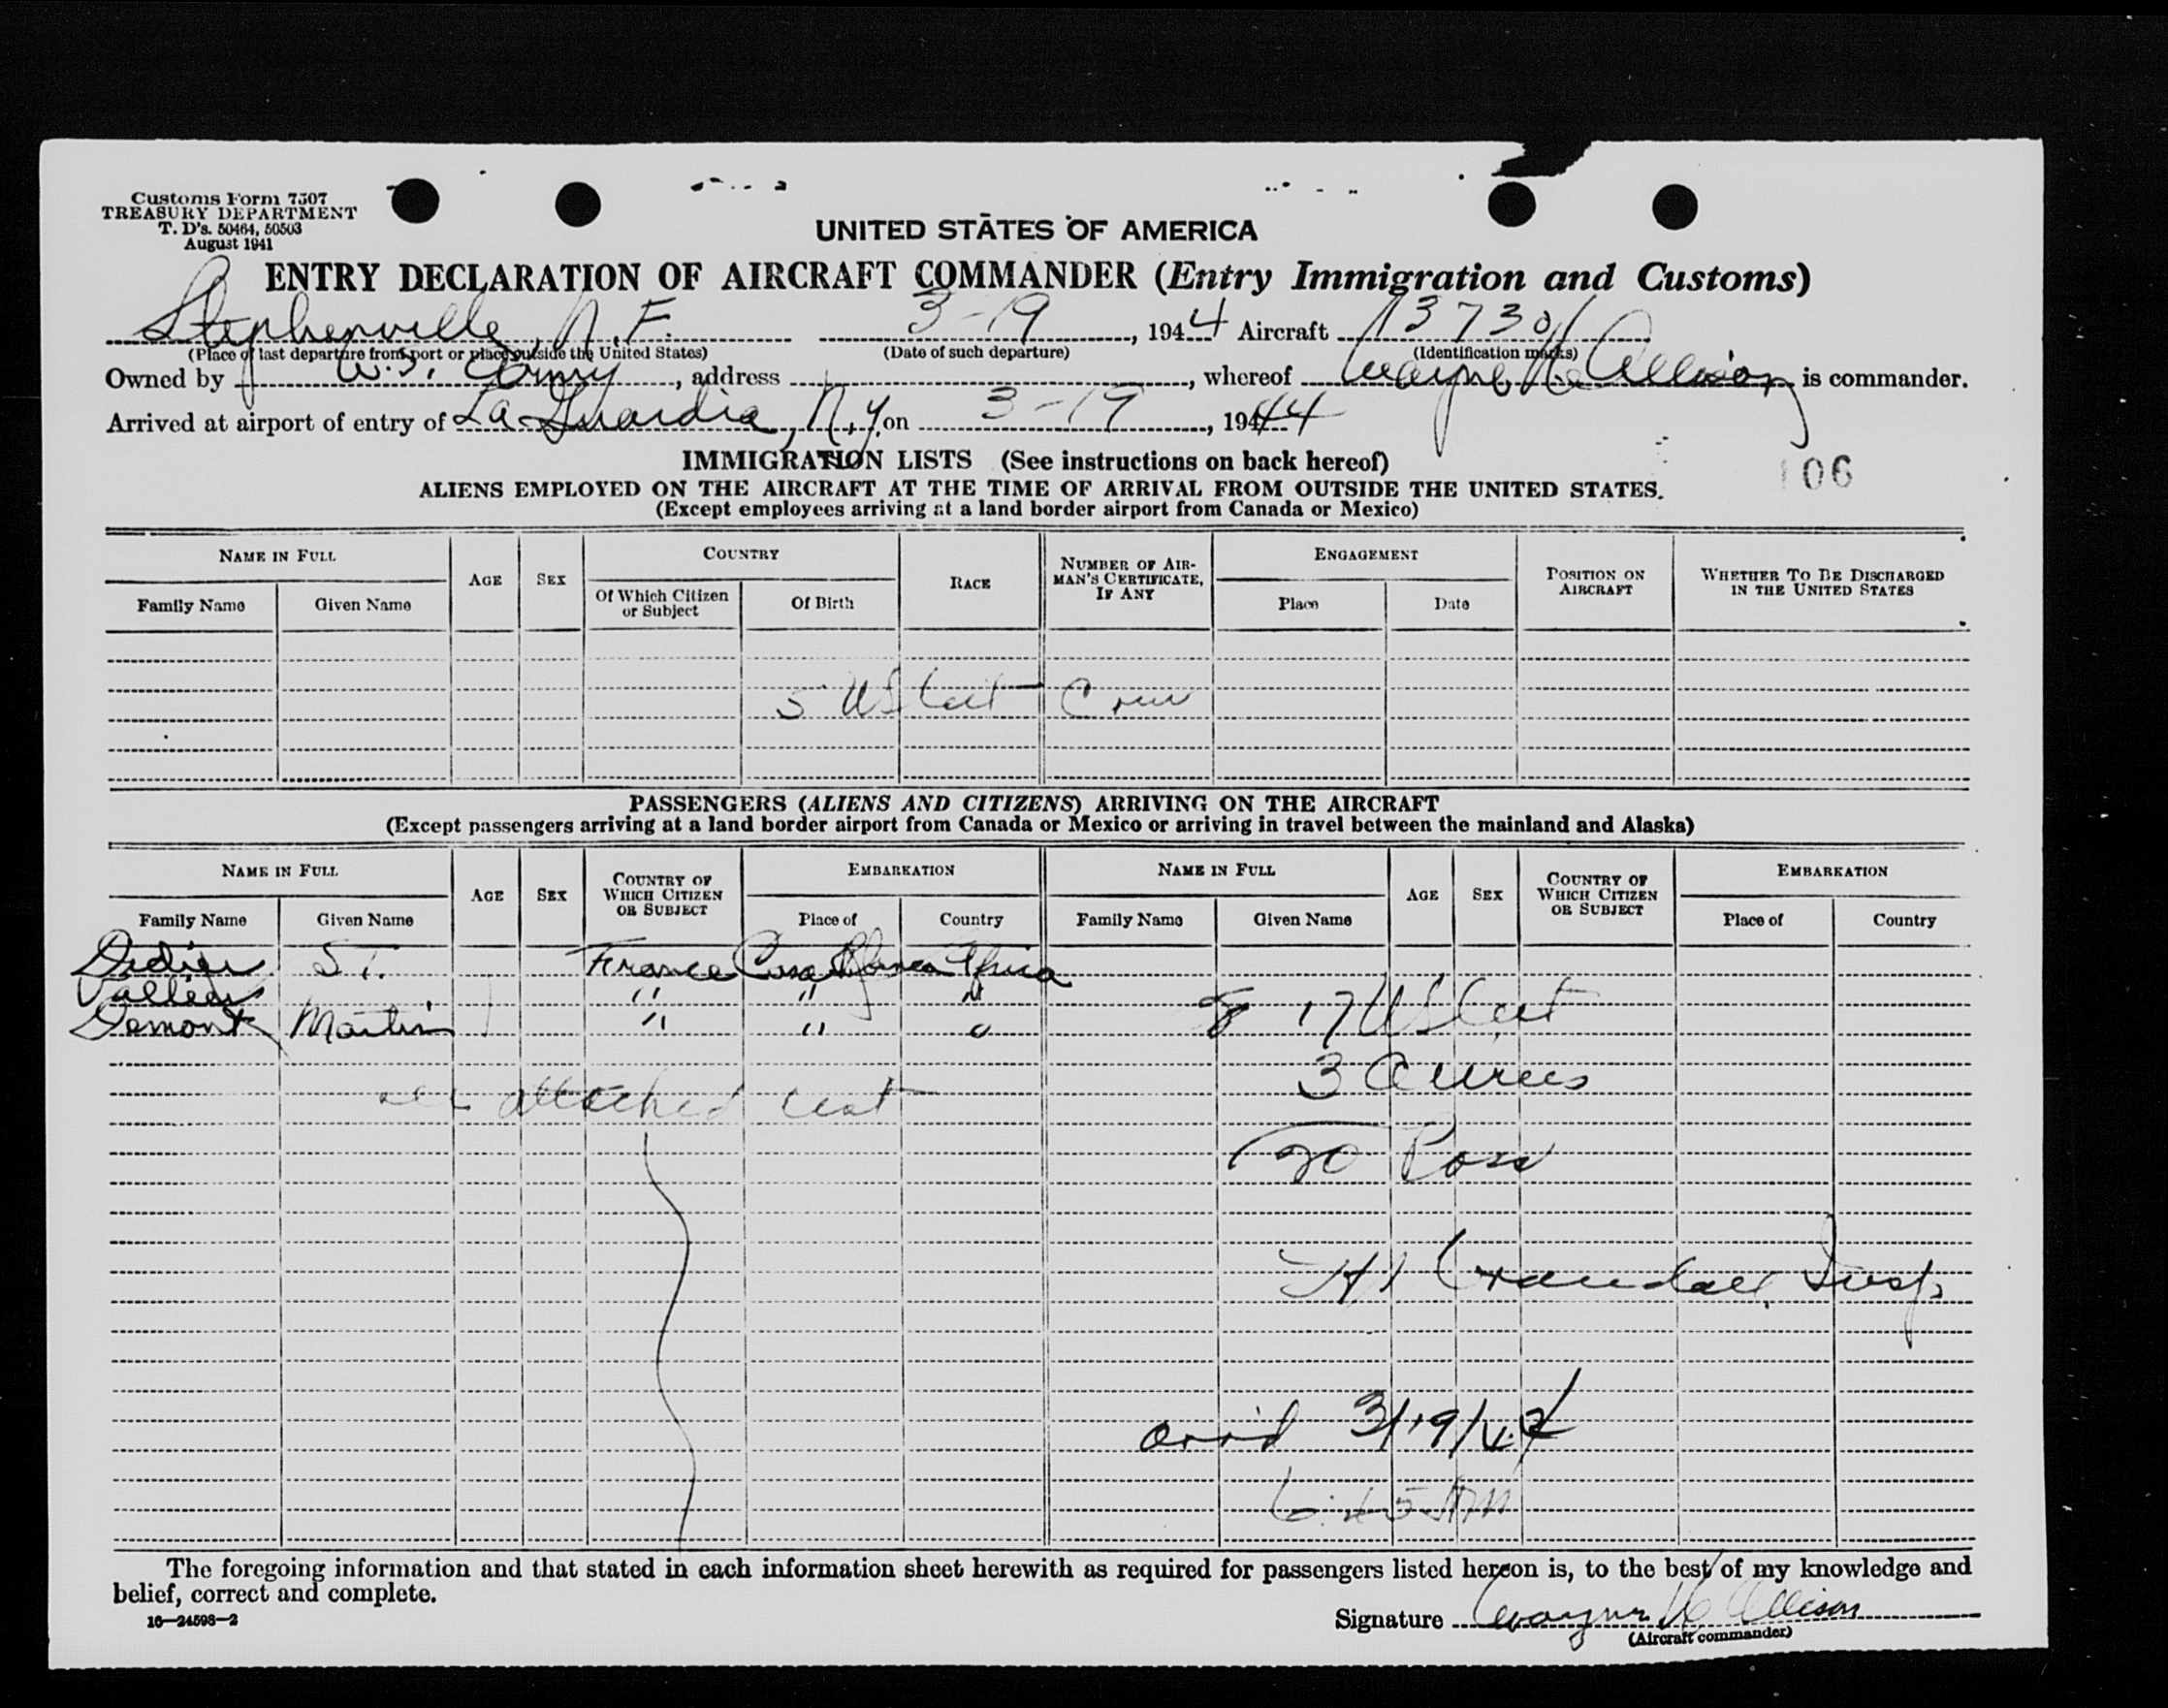 Customs Form 7507
TREASURY DEPARTMENT
T. D's. 50464, 50503
August 1941
UNITED STATES OF AMERICA
ENTRY DECLARATION OF AIRCRAFT COMMANDER (Entry Immigration and Customs)
Stephenville, N.F. 3-19, 1944 Aircraft
(Place of last departure from port or place outside the United States) (Date of such departure) (Identification marks)
Owned by U.S. Army, address, whereof Wayne H. Allison is commander.
Arrived at airport of entry of La Guardia, N.Y. on 3-19, 1944
106
IMMIGRATION LISTS (See instructions on back hereof)
ALIENS EMPLOYED ON THE AIRCRAFT AT THE TIME OF ARRIVAL FROM OUTSIDE THE UNITED STATES.
(Except employees arriving at a land border airport from Canada or Mexico)
NAME IN FULL AGE SEX COUNTRY RACE NUMBER OF AIRMAN'S CERTIFICATE, IF ANY ENGAGEMENT POSITION ON AIRCRAFT WHETHER TO BE DISCHARGED IN THE UNITED STATES
Family Name Given Name Of Which Citizen or Subject Of Birth Place Date
5 US Cit Crew
PASSENGERS (ALIENS AND CITIZENS) ARRIVING ON THE AIRCRAFT
(Except passengers arriving at a land border airport from Canada or Mexico or arriving in travel between the mainland and Alaska)
NAME IN FULL AGE SEX COUNTRY OF WHICH CITIZEN OR SUBJECT EMBARKATION NAME IN FULL AGE SEX COUNTRY OF WHICH CITIZEN OR SUBJECT EMBARKATION
Family Name Given Name Place of Country Family Name Given Name Place of Country
Didier ST. France Casa Blanca Africa
" " "
Demont Martin " " " 17 US Cit
3 Aliens
attached list
20 Pass
Crandall, Insp
arrd 3/19/44
6:45 AM
The foregoing information and that stated in each information sheet herewith as required for passengers listed hereon is, to the best of my knowledge and
belief, correct and complete.
16—24598-2
Signature Wayne H Allison
(Aircraft commander)